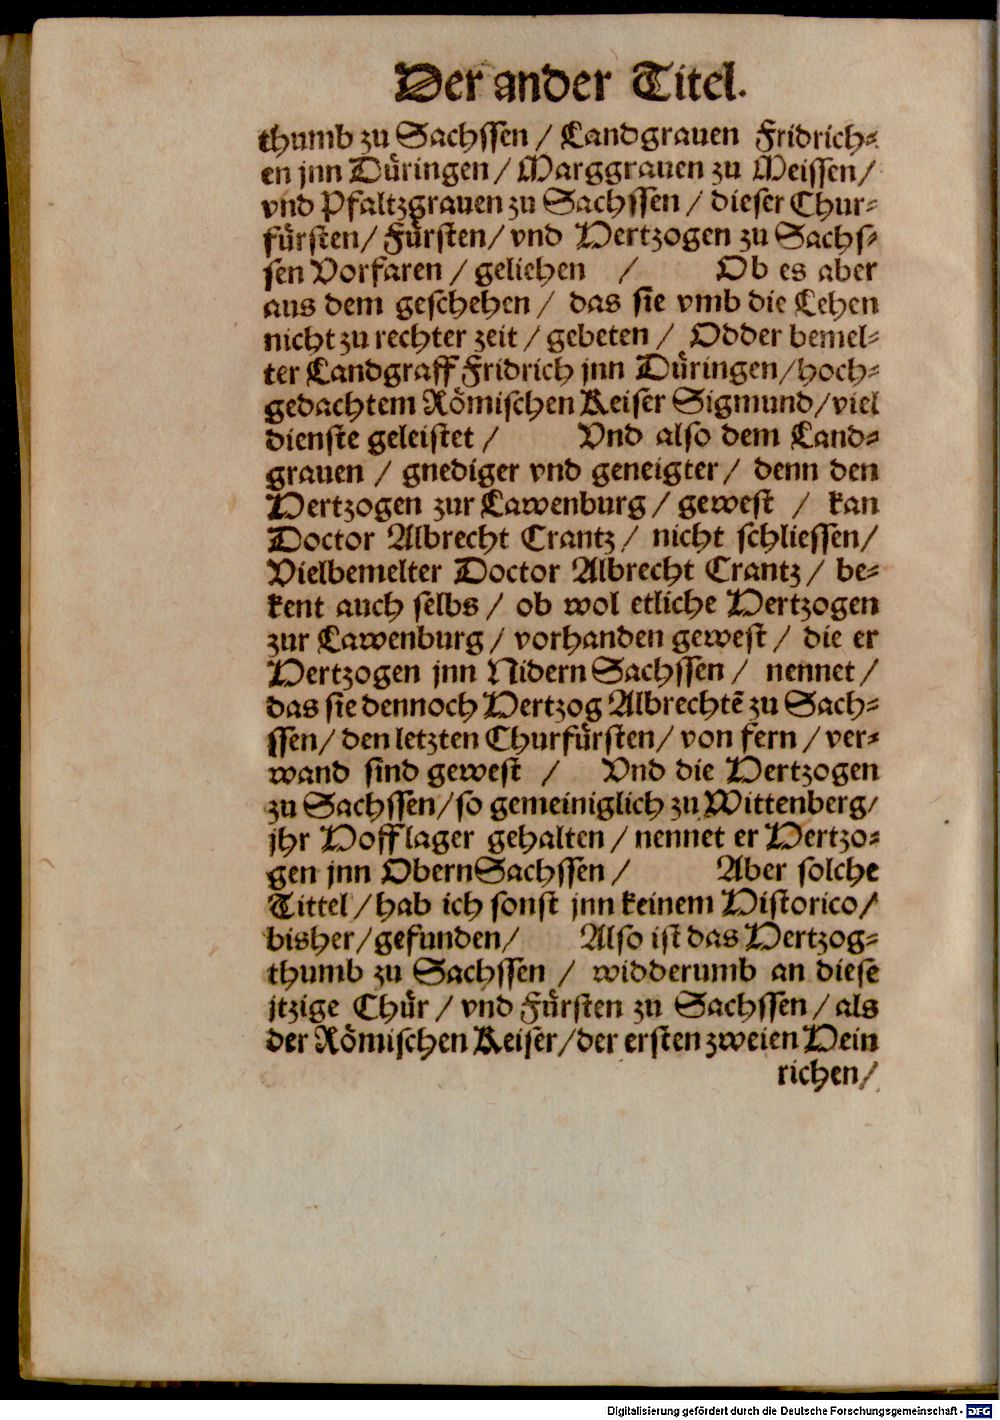 Der ander Titel.
thumb zu Sachssen / Landgrauen Fridrich-
en jnn Düringen / Marggrauen zu Meissen /
vnd Pfaltzgrauen zu Sachssen / dieser Chur-
fürsten / Fürsten / vnd Hertzogen zu Sachs-
sen Vorfaren / geliehen / Ob es aber
aus dem geschehen / das sie vmb die Lehen
nicht zu rechter zeit / gebeten / Odder bemel-
ter Landgraff Fridrich jnn Düringen / hoch-
gedachtem Römischen Keiser Sigmund / viel
dienste geleistet / Vnd also dem Land-
grauen / gnediger vnd geneigter / denn den
Hertzogen zur Lawenburg / gewest / kan
Doctor Albrecht Crantz / nicht schliessen /
Vielbemelter Doctor Albrecht Crantz / be-
kent auch selbs / ob wol etliche Hertzogen
zur Lawenburg / vorhanden gewest / die er
Hertzogen jnn Nidern Sachssen / nennet /
das sie dennoch Hertzog Albrechtē zu Sach-
ssen / den letzten Churfürsten / von fern / ver-
wand sind gewest / Vnd die Hertzogen
zu Sachssen / so gemeiniglich zu Wittenberg /
jhr Hofflager gehalten / nennet er Hertzo-
gen jnn Obern Sachssen / Aber solche
Tittel / hab ich sonst jnn keinem Historico /
bisher / gefunden / Also ist das Hertzog-
thumb zu Sachssen / widderumb an diese
jtzige Chür / vnd Fürsten zu Sachssen / als
der Römischen Keiser / der ersten zweien Hein
richen /
Digitalisierung gefördert durch die Deutsche Forschungsgemeinschaft - DFG